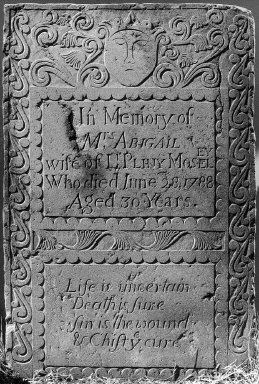 In Memory of
Mrs ABIGAIL
wife of Lt PLINY MOSEL
EY
Who died June 28, 1788
Aged 30 Years.
Life is uncertain
Death is sure
Sin is the wound
& Christ ye cure